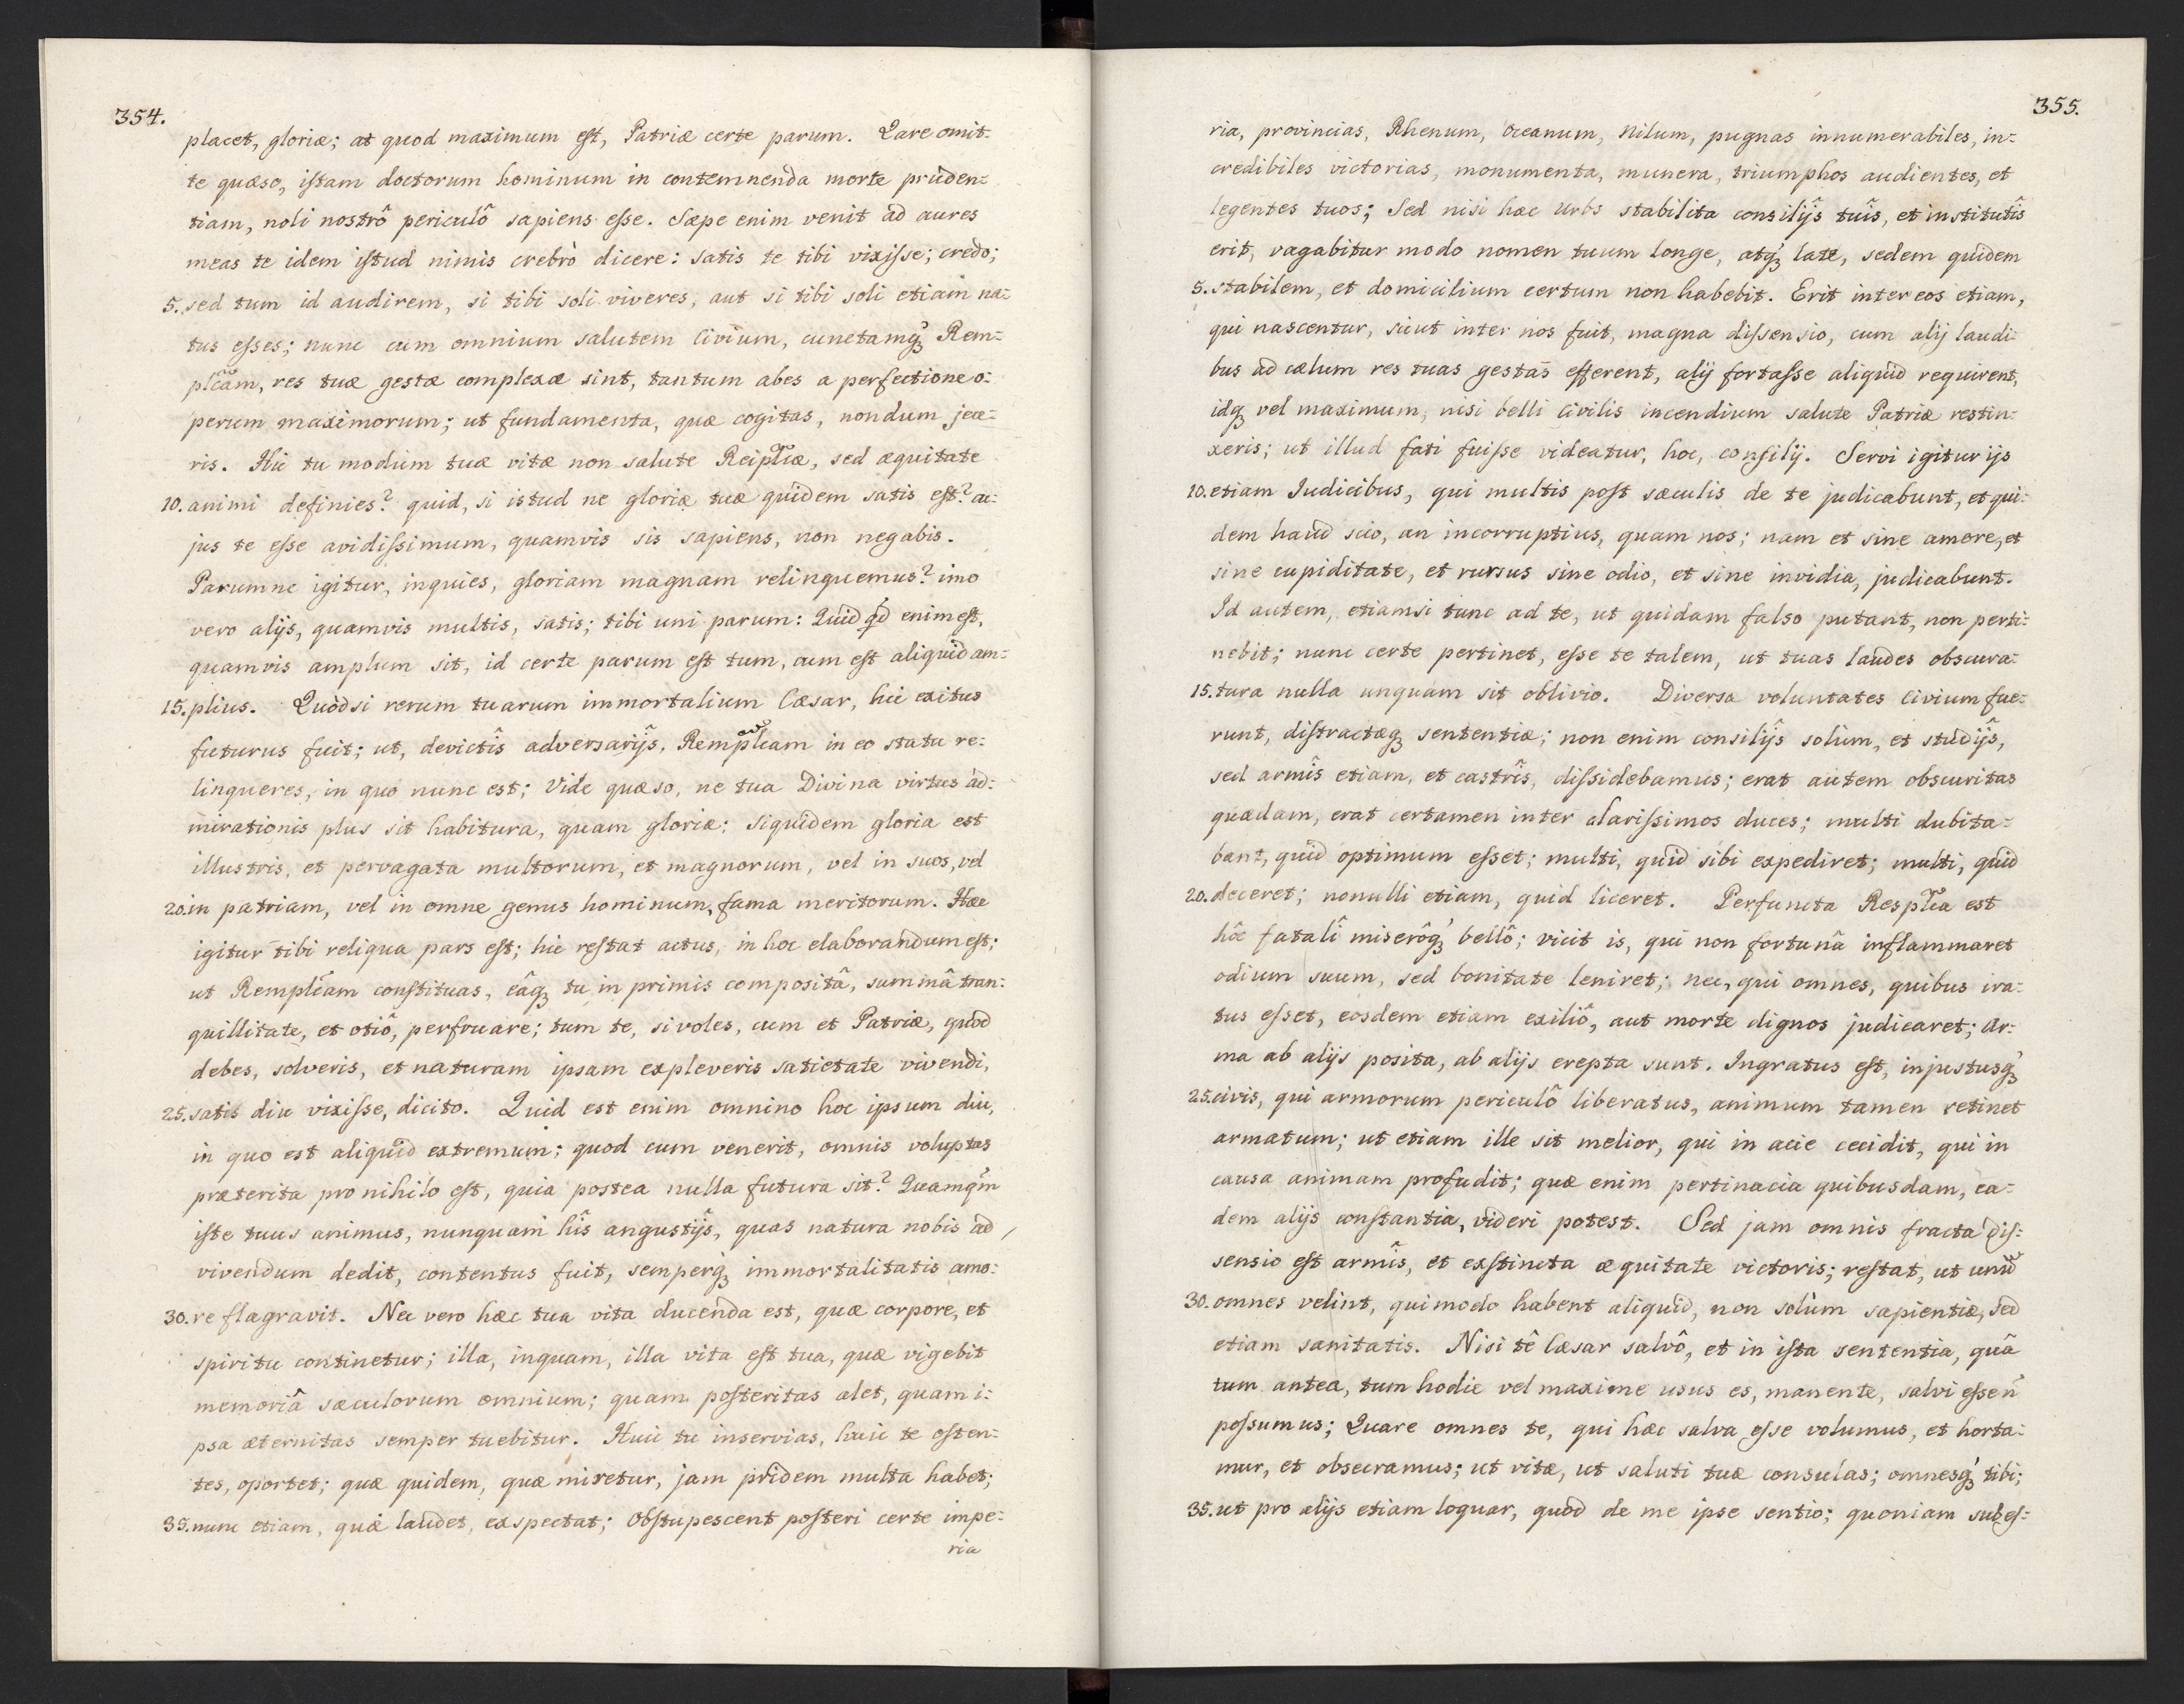 354.
placet, gloriæ; at quod maximum est, Patriæ certe parum. Quare omit-
te quæso, istam doctorum hominum in contemnenda morte pruden-
tiam, noli nostrô periculô sapiens esse. Sæpe enim venit ad aures
meas te idem istud nimis crebrò dicere: satis te tibi vixisse; credo;
5. sed tum id audirem, si tibi soli viveres, aut si tibi soli etiam na-
tus esses; nunc cum omnium salutem Civium, cunctamq3 Rem-
plcam, res tuæ gestæ complexæ sint, tantum abes a perfectione o-
perum maximorum; ut fundamenta, quæ cogitas, nondum jece-
ris. Hic tu modum tuæ vitæ non salute Reiplcæ, sed æquitate
10. animi definies? quid, si istud ne gloriæ tuæ quidem satis est? cu-
jus te esse avidissimum, quamvis sis sapiens, non negabis.
Parumne igitur, inquies, gloriam magnam relinquemus? imo
vero alijs, quamvis multis, satis; tibi uni parum: Quidqd enim est,
quamvis amplum sit, id certe parum est tum, cum est aliquid am-
15. plius. Quòdsi rerum tuarum immortalium Cæsar, hic exitus
futurus fuit; ut, devictîs adversarijs, Remplcam in eo statu re-
linqueres, in quo nunc est; Vide quæso, ne tua Divina virtus ad-
mirationis plus sit habitura, quam gloriæ: siquidem gloria est
illustris, et pervagata multorum, et magnorum, vel in suos, vel
20. in patriam, vel in omne genus hominum, fama meritorum. Hæc
igitur tibi reliqua pars est; hic restat actus, in hoc elaborandum est;
ut Remplcam constituas, eâq3 tu in primis compositâ, summâ tran-
quillitate, et otiô, perfruare; tum te, si voles, cum et Patriæ, quod
debes, solveris, et naturam ipsam expleveris satietate vivendi,
25. satis diu vixisse, dicito. Quid est enim omnino hoc ipsum diu,
in quo est aliquid extremum; quod cum venerit, omnis voluptas
præterita pro nihilo est, quia postea nulla futura sit? Quamqm
iste tuus animus, nunquam hîs angustijs, quas natura nobis ad
vivendum dedit, contentus fuit, semperq3 immortalitatis amo-
30. re flagravit. Nec vero hæc tua vita ducenda est, quæ corpore, et
spiritu continetur; illa, inquam, illa vita est tua, quæ vigebit
memoriâ sæculorum omnium; quam posteritas alet, quam i-
psa æternitas semper tuebitur. Huic tu inservias, huic te osten-
tes, oportet; quæ quidem, quæ miretur, jam pridem multa habet;
35. nunc etiam, quæ laudet, exspectat; Obstupescent posteri certe impe-
ria
355.
ria, provincias, Rhenum, Oceanum, Nilum, pugnas innumerabiles, in-
credibiles victorias, monumenta, munera, triumphos audientes, et
legentes tuos; Sed nisi hæc Urbs stabilita consilijs tuîs, et institutîs
erit, vagabitur modo nomen tuum longe, atq3 late, sedem quidem
5. stabilem, et domicilium certum non habebit. Erit inter eos etiam,
qui nascentur, sicut inter nos fuit, magna dissensio, cum alij laudi-
bus ad cælum res tuas gestas efferent, alij fortasse aliquid requirent,
idq3 vel maximum, nisi belli Civilis incendium salute Patriæ restin-
xeris; ut illud fati fuisse videatur, hoc, consilij. Servi igitur ijs
10. etiam Judicibus, qui multis post sæculis de te judicabunt, et qui-
dem haud scio, an incorruptius, quam nos; nam et sine amore, et
sine cupiditate, et rursus sine odio, et sine invidia, judicabunt.
Id autem, etiamsi tunc ad te, ut quidam falso putant, non perti-
nebit; nunc certe pertinet, esse te talem, ut tuas laudes obscura-
15. tura nulla unquam sit oblivio. Diversa voluntates Civium fue-
runt, distractæq3 sententiæ; non enim consilijs solùm, et studijs,
sed armîs etiam, et castrîs, dissidebamus; erat autem obscuritas
quædam, erat certamen inter clarissimos duces; multi dubita-
bant, quid optimum esset; multi, quid sibi expediret; multi, quid
20. deceret; nonulli etiam, quid liceret. Perfuncta Resplca est
hôc fatali miserôq3 bellô; vicit is, qui non fortunâ inflammaret
odium suum, sed bonitate leniret; nec, qui omnes, quibus ira-
tus esset, eosdem etiam exiliô, aut morte dignos judicaret; Ar-
ma ab alijs posita, ab alijs erepta sunt. Ingratus est, injustusq3
25. civis, qui armorum periculô liberatus, animum tamen retinet
armatum; ut etiam ille sit melior, qui in acie cecidit, qui in
causa animam profudit; quæ enim pertinacia quibusdam, ea-
dem alijs constantia, videri potest. Sed jam omnis fracta dis-
sensio est armîs, et exstincta æquitate victoris; restat, ut unu
30. omnes velint, qui modo habent aliquid, non solùm sapientiæ, sed
etiam sanitatis. Nisi tê Cæsar salvô, et in ista sententia, quâ
tum antea, tum hodie vel maxime usus es, manente, salvi essen
possumus; Quare omnes te, qui hæc salva esse volumus, et horta-
mur, et obsecramus; ut vitæ, ut saluti tuæ consulas; omnesq3 tibi;
35. ut pro alijs etiam loquar, quod de me ipse sentio; quoniam subes-